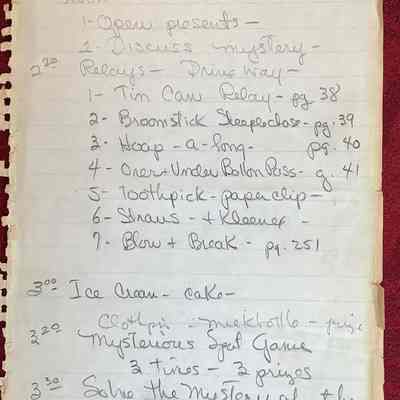 1- Open presents -
2- Discuss mystery -
2 20 Relays - Drive way -
1- Tin Can Relay - pg 38
2- Broomstick Steeplechase - pg. 39
3- Hoop - a - long - pg. 40
4- Over + Under Ballon Pass - g. 41
5- Toothpick - paperclip -
6- Straws - + Kleenex -
7- Blow + Break - pg. 251
3 00 Ice Cream - cake -
Clothpin - milkbottle - prize
3 20 Mysterious Spot Game
3 times - 3 prizes
3 30 Solve the Mystery of the